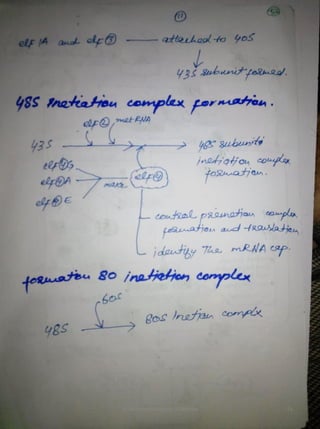 11
eIF 1A and eIF ③ — attached to 40S
43S subunit formed.
48S Inetiation complex formation.
eIF ② metRNA
43S → 48S subunits
inetiotion complex
formation.
eIF④G
eIF④A make eIF④
eIF④E
control premetion complex
formation and translation
identify The mRNA cap.
formation 80 inetietion complex
60S
48S → 80S Inetion complex